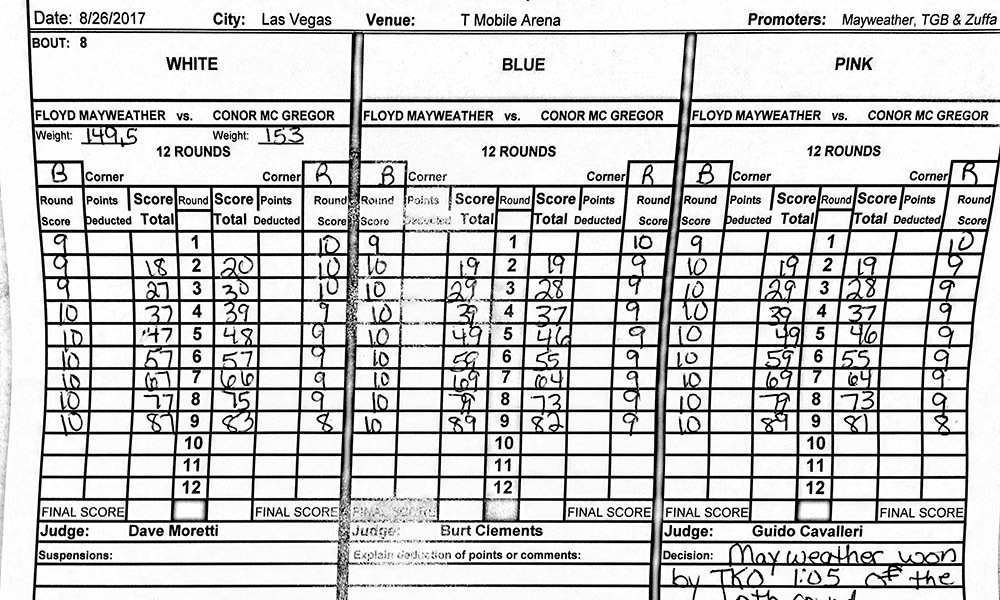 Date: 8/26/2017 City: Las Vegas Venue: T Mobile Arena Promoters: Mayweather, TGB & Zuffa
BOUT: 8
WHITE BLUE PINK
FLOYD MAYWEATHER vs. CONOR MC GREGOR FLOYD MAYWEATHER vs. CONOR MC GREGOR FLOYD MAYWEATHER vs. CONOR MC GREGOR
Weight: 149.5 Weight: 153
12 ROUNDS 12 ROUNDS 12 ROUNDS
B Corner Corner R B Corner Corner R B Corner Corner R
Round Points Score Round Score Points Round Round Points Score Round Score Points Round Round Points Score Round Score Points Round
Score Deducted Total Total Deducted Score Score Deducted Total Total Deducted Score Score Deducted Total Total Deducted Score
9 1 10 9 1 10 9 1 10
9 18 2 20 10 10 19 2 19 9 10 19 2 19 9
9 27 3 30 10 10 29 3 28 9 10 29 3 28 9
10 37 4 39 9 10 39 4 37 9 10 39 4 37 9
10 47 5 48 9 10 49 5 46 9 10 49 5 46 9
10 57 6 57 9 10 59 6 55 9 10 59 6 55 9
10 67 7 66 9 10 69 7 64 9 10 69 7 64 9
10 77 8 75 9 10 79 8 73 9 10 79 8 73 9
10 87 9 83 8 10 89 9 82 9 10 89 9 81 8
10 10 10
11 11 11
12 12 12
FINAL SCORE FINAL SCORE FINAL SCORE FINAL SCORE FINAL SCORE FINAL SCORE
Judge: Dave Moretti Judge: Burt Clements Judge: Guido Cavalleri
Suspensions: Explain deduction of points or comments: Decision: Mayweather won
by TKO 1:05 of the